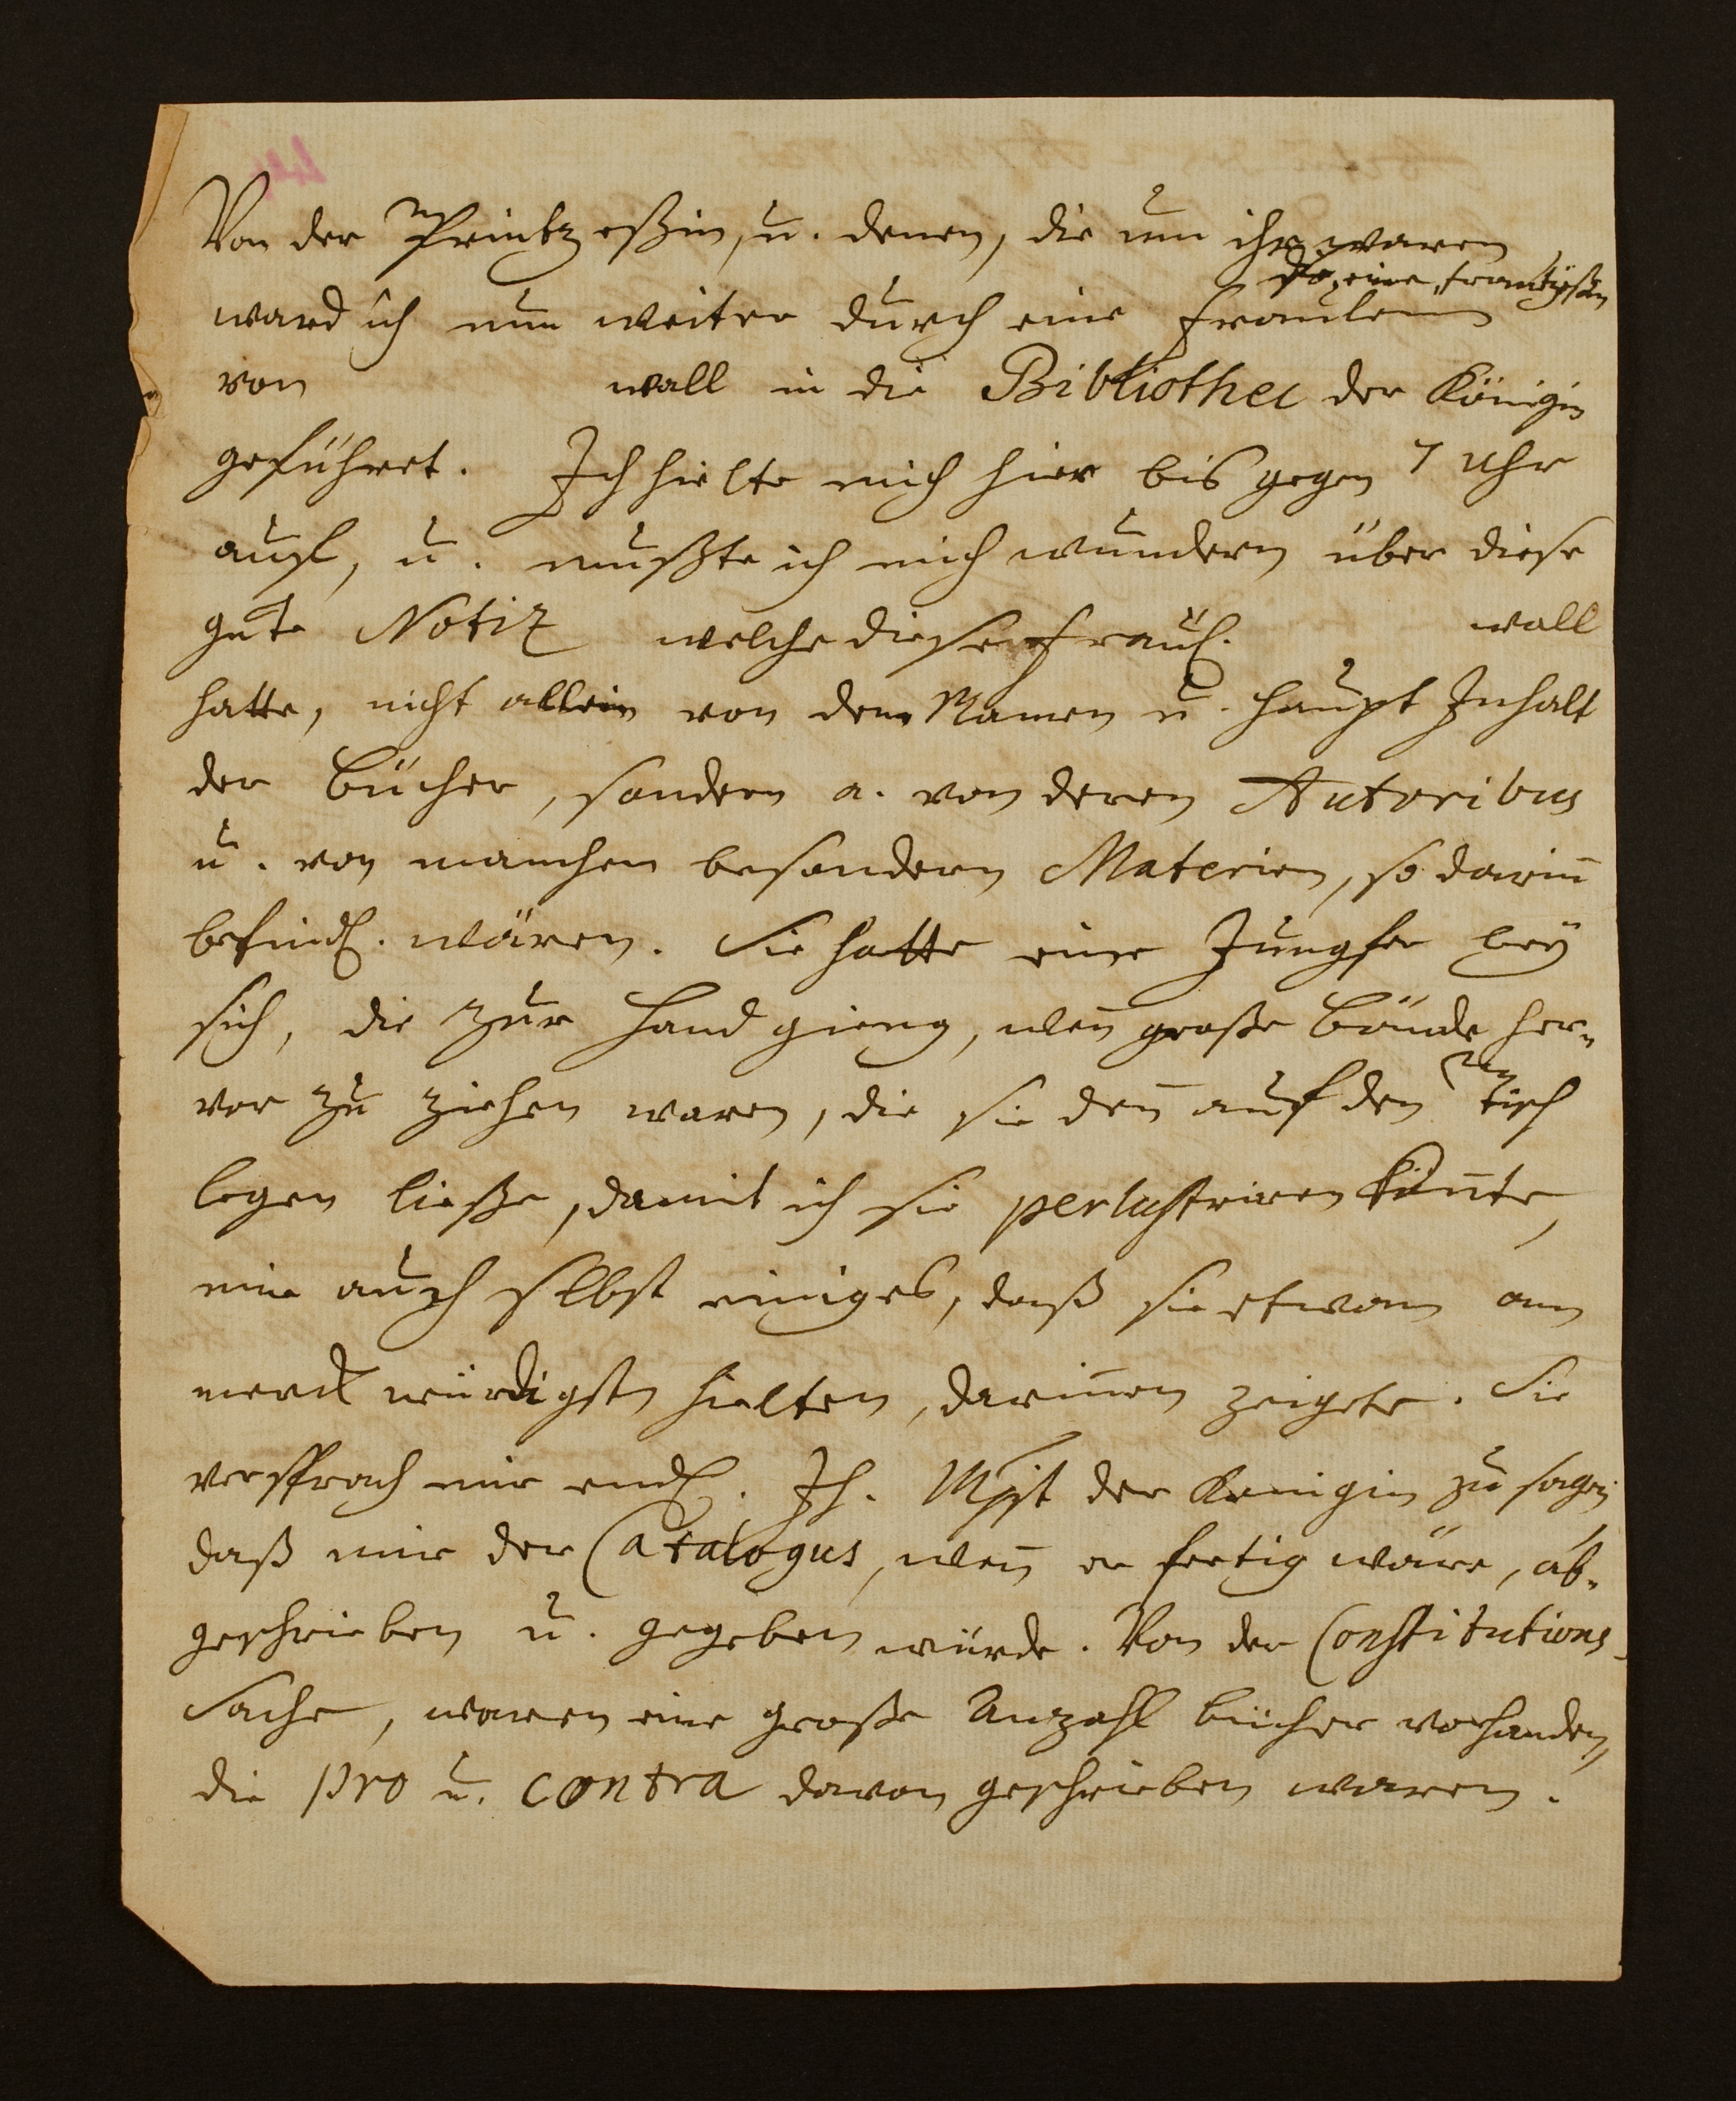 Von der Printzeßin, u. denen, die um ihr waren
so eine Frantzösin
ward ich nun weiter durch eine Fraulein
von wall in die Bibliothec der Königin
geführet. Ich hielte mich hier bis gegen 7 Uhr
auf, u. mußte ich mich wundern über diese
gute Notiz welche diese Fräul. wall
hatte, nicht allein von dem Namen u. Haupt Inhalt
der Bücher, sondern a. von deren Autoribus
u. von manchen besondern Materien, so dariñ
befindl. wären. Sie hatte eine Jungfer bey
sich, die zur Hand gieng, weñ große Bände her¬
vor zu ziehen waren, die sie deñ auf den tisch
legen ließe, damit ich sie perlustriren köñte,
mir auch selbst einiges, daß sie etwan am
merckwürdigsten hielten, dariñen zeigete. Sie
versprach mir endl. Ih. Mjst der Königin zu sagen
daß mir der Catalogus, weñ er fertig wäre, ab¬
geschrieben u. gegeben würde. Von der Constitutions-
Sache, waren eine große Anzahl bücher vorhanden,
die pro u. contra davon geschrieben waren.